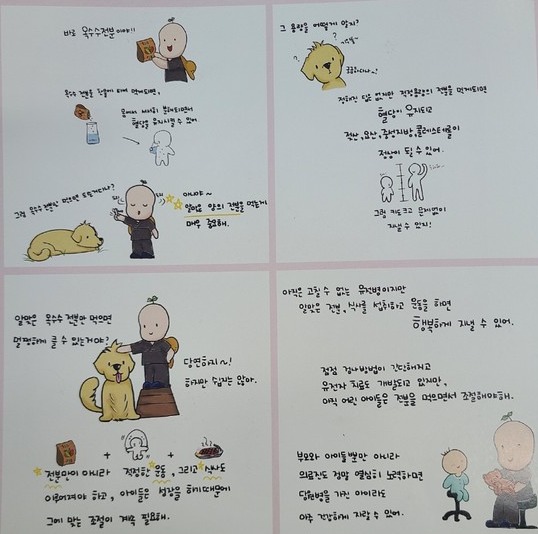 바로 옥수수전분 이야!!
옥수수 전분을 찬물에 타서 먹게되면,
몸에서 서서히 분해되면서
혈당을 유지시킬 수 있어.
그럼 옥수수전분만 먹으면 되는거겠지?
아니야~
알맞은 양의 전분을 먹는게
매우 중요해.
그 용량을 어떻게 알지?
궁금하다냐~!
정해진 답은 없지만 적정용량의 전분을 먹게되면
혈당이 유지되고
젖산, 요산, 중성지방, 콜레스테롤이
정상이 될 수 있어.
그럼 키도크고 문제없이
지낼 수 있지!
알맞은 옥수수 전분만 먹으면
멀쩡하게 클 수 있는거야?
당연하지~!
하지만 쉽지는 않아.
+ +
전분만이 아니라 적절한 운동, 그리고 식사도
이루어져야 하고, 아이들은 성장을 하기때문에
그에 맞는 조절이 계속 필요해.
아직은 고칠 수 없는 유전병이지만
알맞은 전분, 식사를 섭취하고 운동을 하면
행복하게 지낼 수 있어.
점점 검사방법이 간단해지고
유전자 치료도 개발되고 있지만,
아직 어린 아이들은 전분을 먹으면서 조절해야해.
부모와 아이들뿐만 아니라
의료진도 정말 열심히 노력하면
당원병을 가진 아이라도
아주 건강하게 자랄 수 있어.